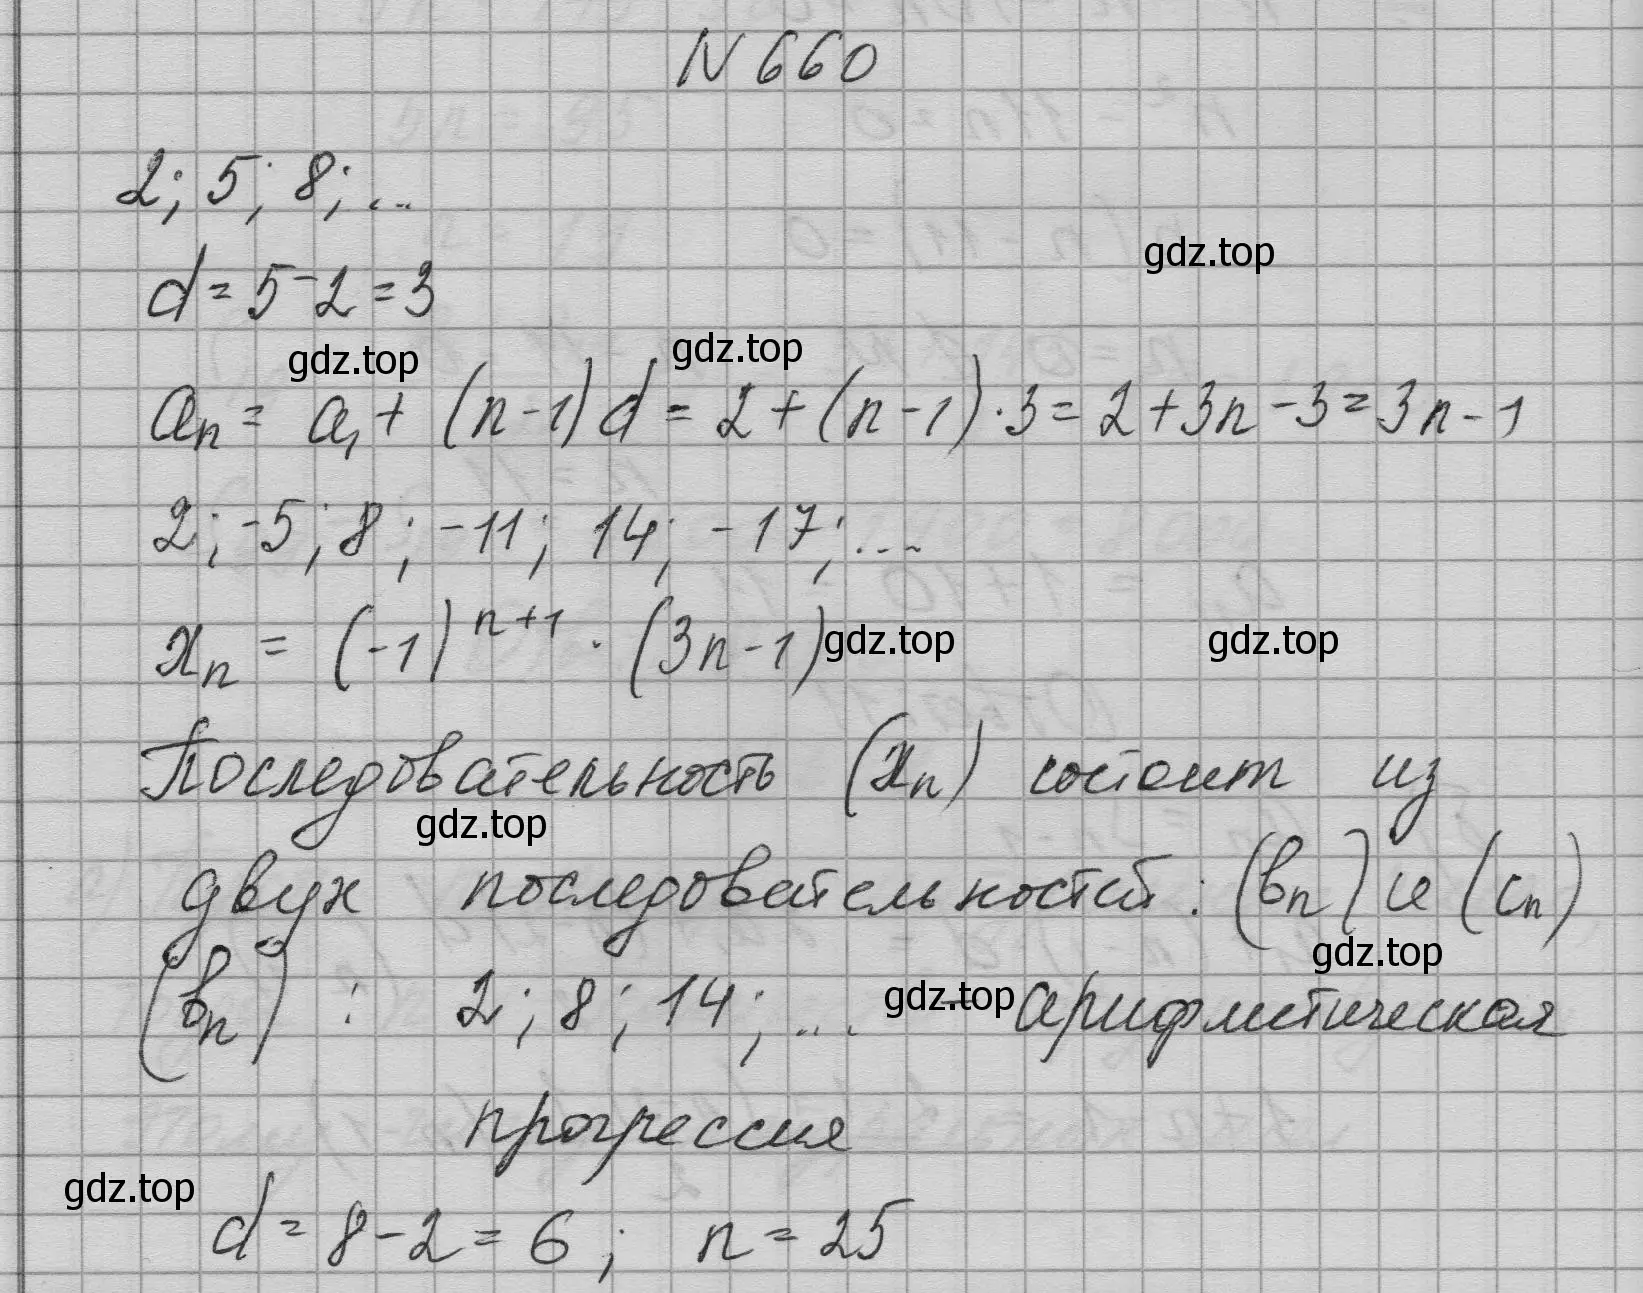 N 660
2; 5; 8; ...
gdz.top
d = 5 - 2 = 3
gdz.top gdz.top
aₙ = a₁ + (n - 1) d = 2 + (n - 1) · 3 = 2 + 3n - 3 = 3n - 1
2; -5; 8; -11; 14; -17; ...
xₙ = (-1)ⁿ⁺¹ · (3n - 1) gdz.top gdz.top
Последовательность (xₙ) состоит из
gdz.top
двух последовательностей: (bₙ) и (cₙ)
gdz.top
(bₙ) : 2; 8; 14; ... gdz.top - арифметическая
прогрессия
gdz.top
d = 8 - 2 = 6; n = 25